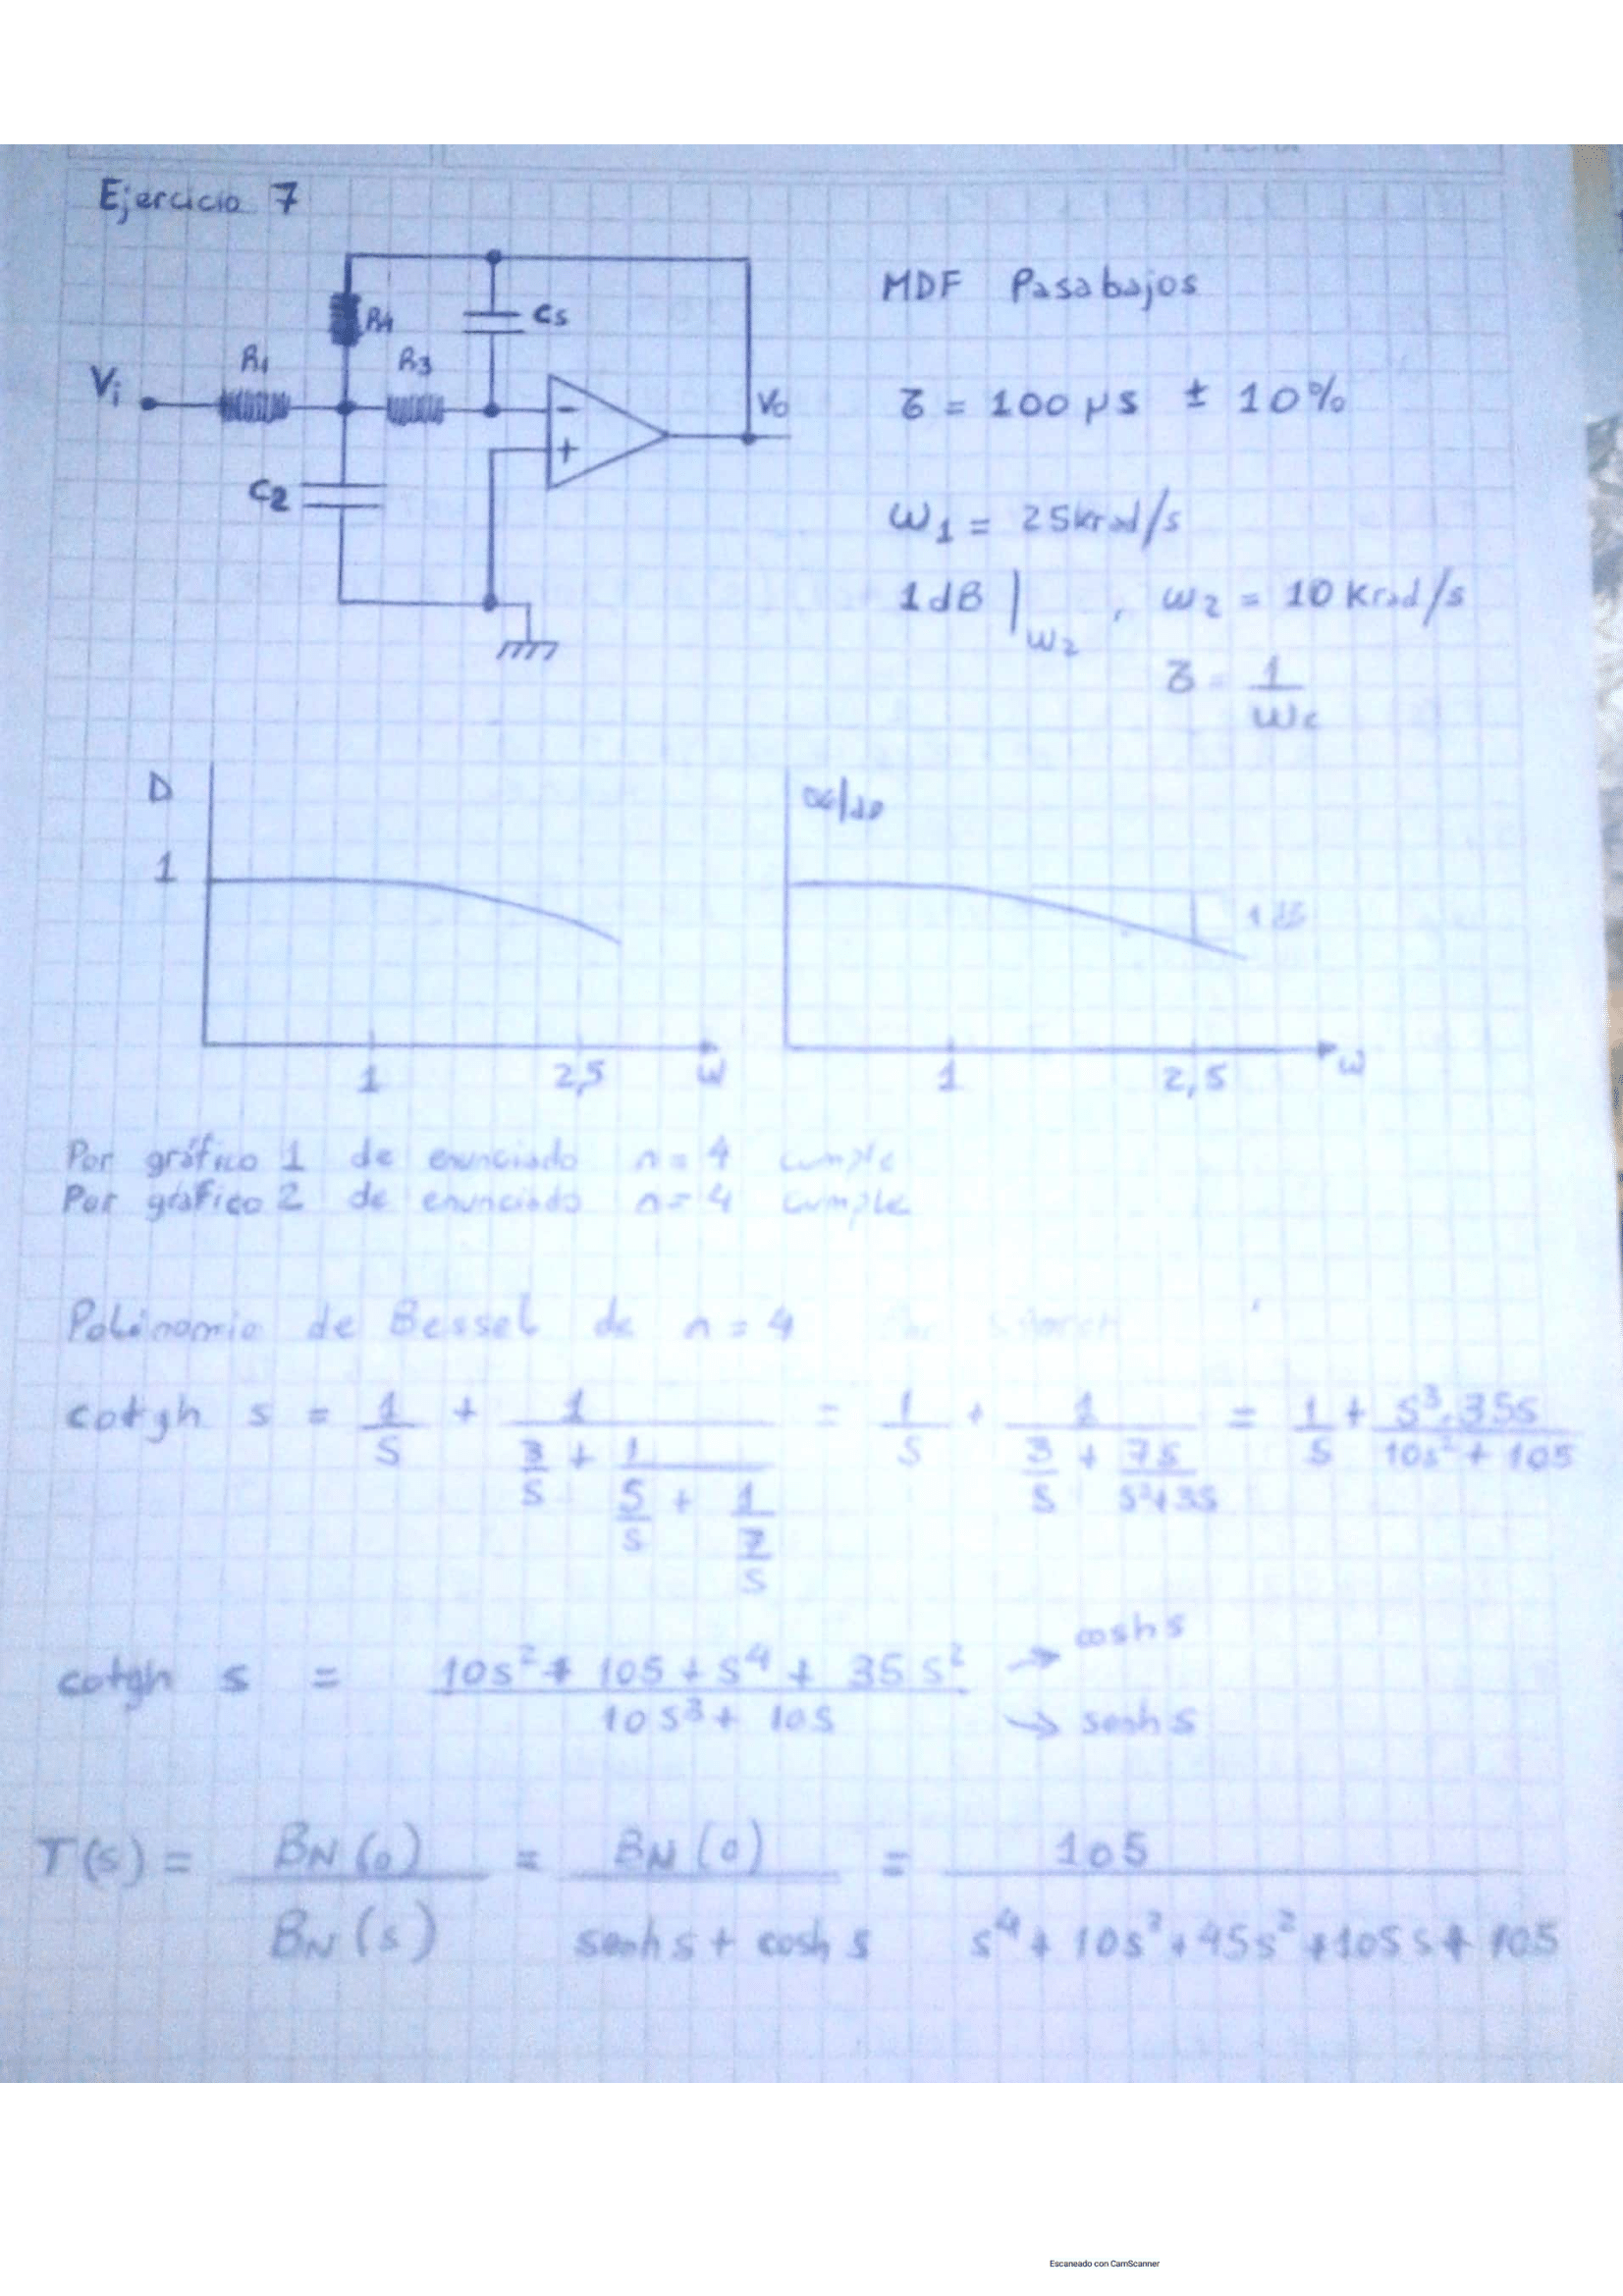 Ejercicio 7
MDF Pasabajos
R4
C5
R1
R3
Vi
Vo
ζ = 100 μs ± 10%
-
+
C2
ω1 = 25krad/s
1dB | ω2 , ω2 = 10 Krad/s
ζ = 1/ωc
D
α/dB
1
1 dB
1 2,5 ω
1 2,5 ω
Por gráfico 1 de enunciado n = 4 cumple
Por gráfico 2 de enunciado n = 4 cumple
Polinomio de Bessel de n = 4
cotgh s = 1/s + 1/(3/s + 1/(5/s + 1/(7/s))) = 1/s + 1/(3/s + 7s/(s²+35)) = 1/s + (s³+35s)/(10s² + 105)
cotgh s = (10s² + 105 + s⁴ + 35s²)/(10s³ + 105) → cosh s
→ senh s
T(s) = BN(0)/BN(s) = BN(0)/(senh s + cosh s) = 105/(s⁴ + 10s³ + 45s² + 105s + 105)
Escaneado con CamScanner